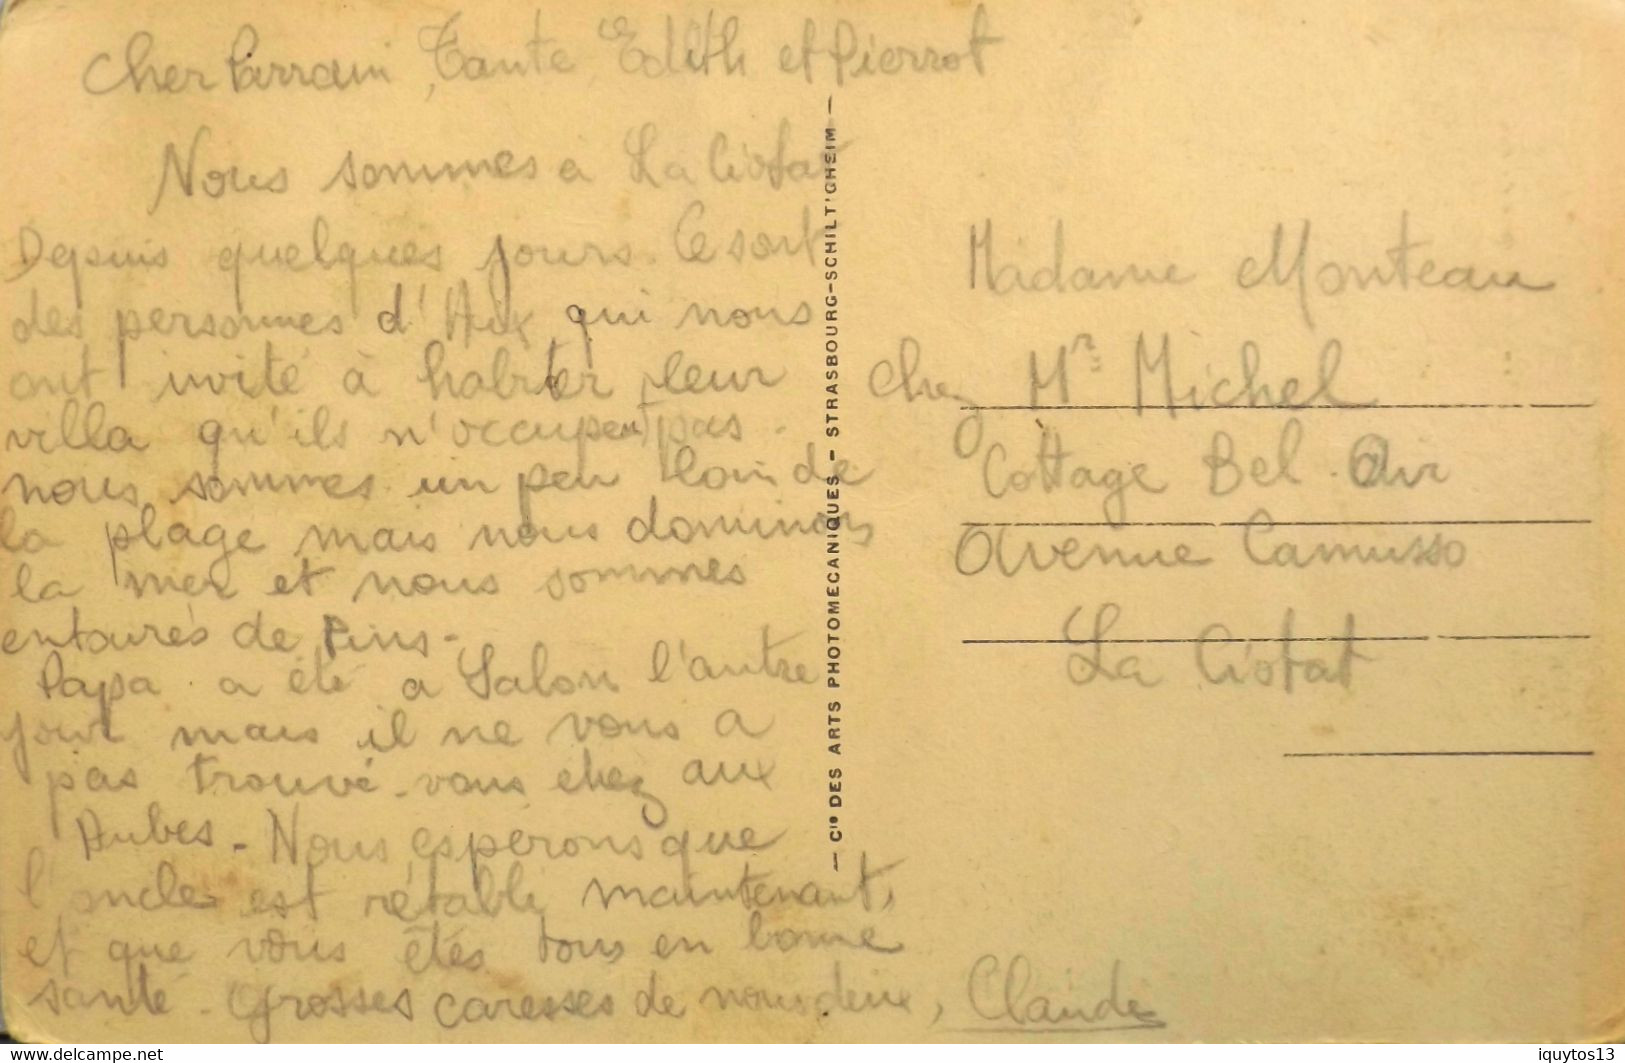 Cher Parrain, Tante, Edith et Pierrot
Nous sommes a La Ciotat
Depuis quelques jours. Ce sont
des personnes d'Aix qui nous
ont invité à habiter leur
villa qu'ils n'occupent pas.
nous sommes un peu loin de
la plage mais nous dominons
la mer et nous sommes
entourés de Pins -
Papa a été a Salon l'autre
jour mais il ne vous a
pas trouvé. vous chez aux
Aubes - Nous espérons que
l'oncle est rétabli maintenant,
et que vous êtes tous en bonne
santé. Grosses caresses de nous deux, Claude
— Cie DES ARTS PHOTOMECANIQUES — STRASBOURG-SCHILT'GHEIM —
Madame Monteau
chez Mr Michel
Cottage Bel Air
Avenue Camusso
La Ciotat
delcampe.net
iquytos13